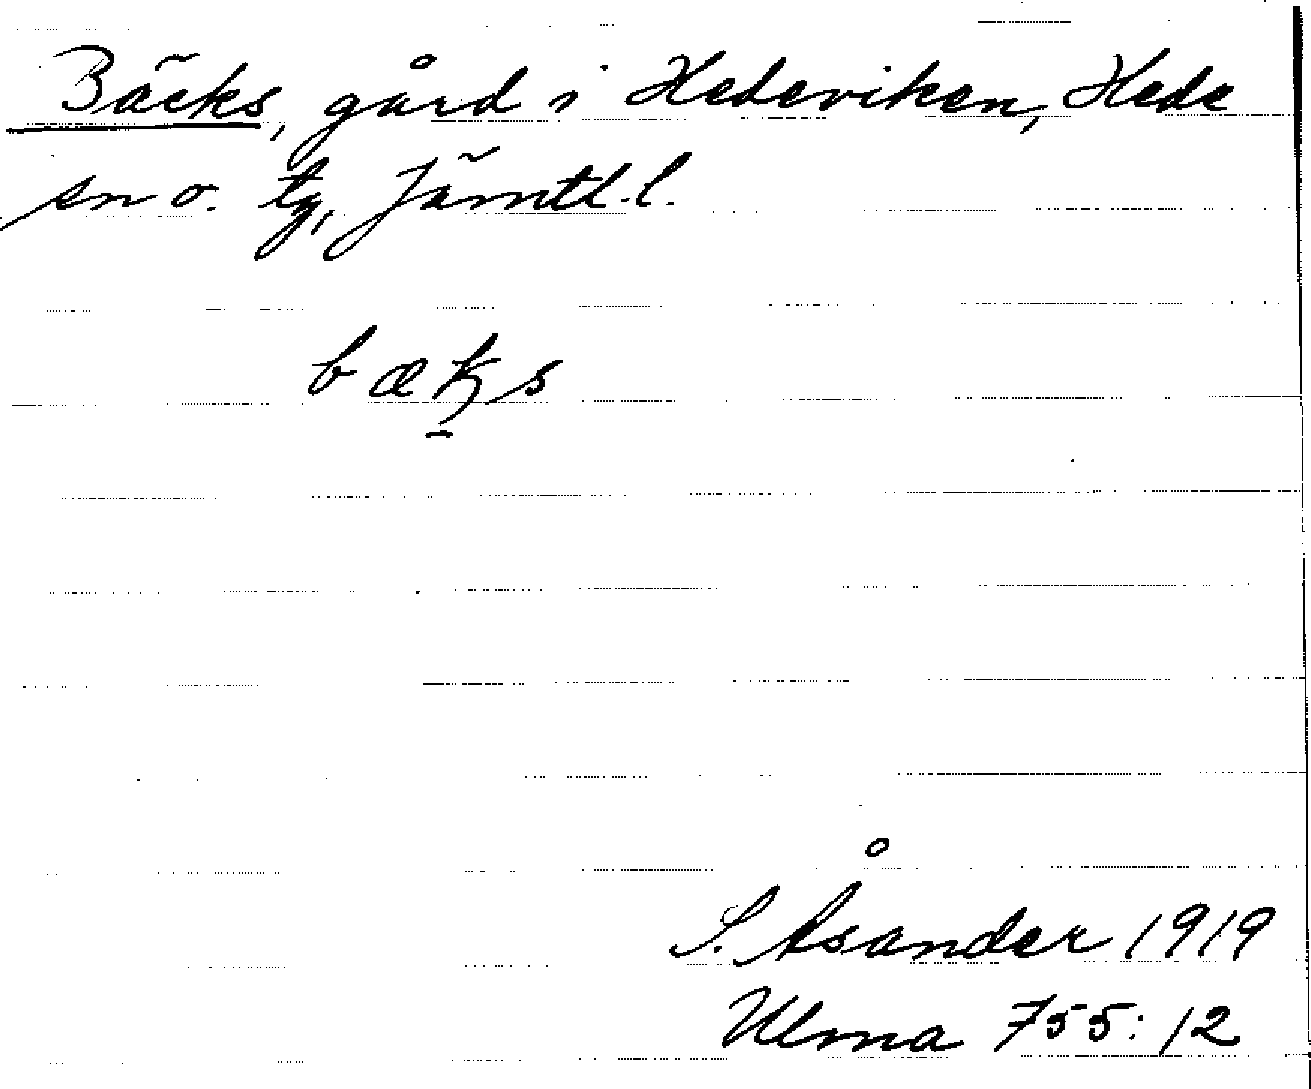 Bäcks, gård i Hedeviken, Hede
sn o. tg, Jämtl. l.
bæk̡s
S. Åsander 1919
Ulma 755:12